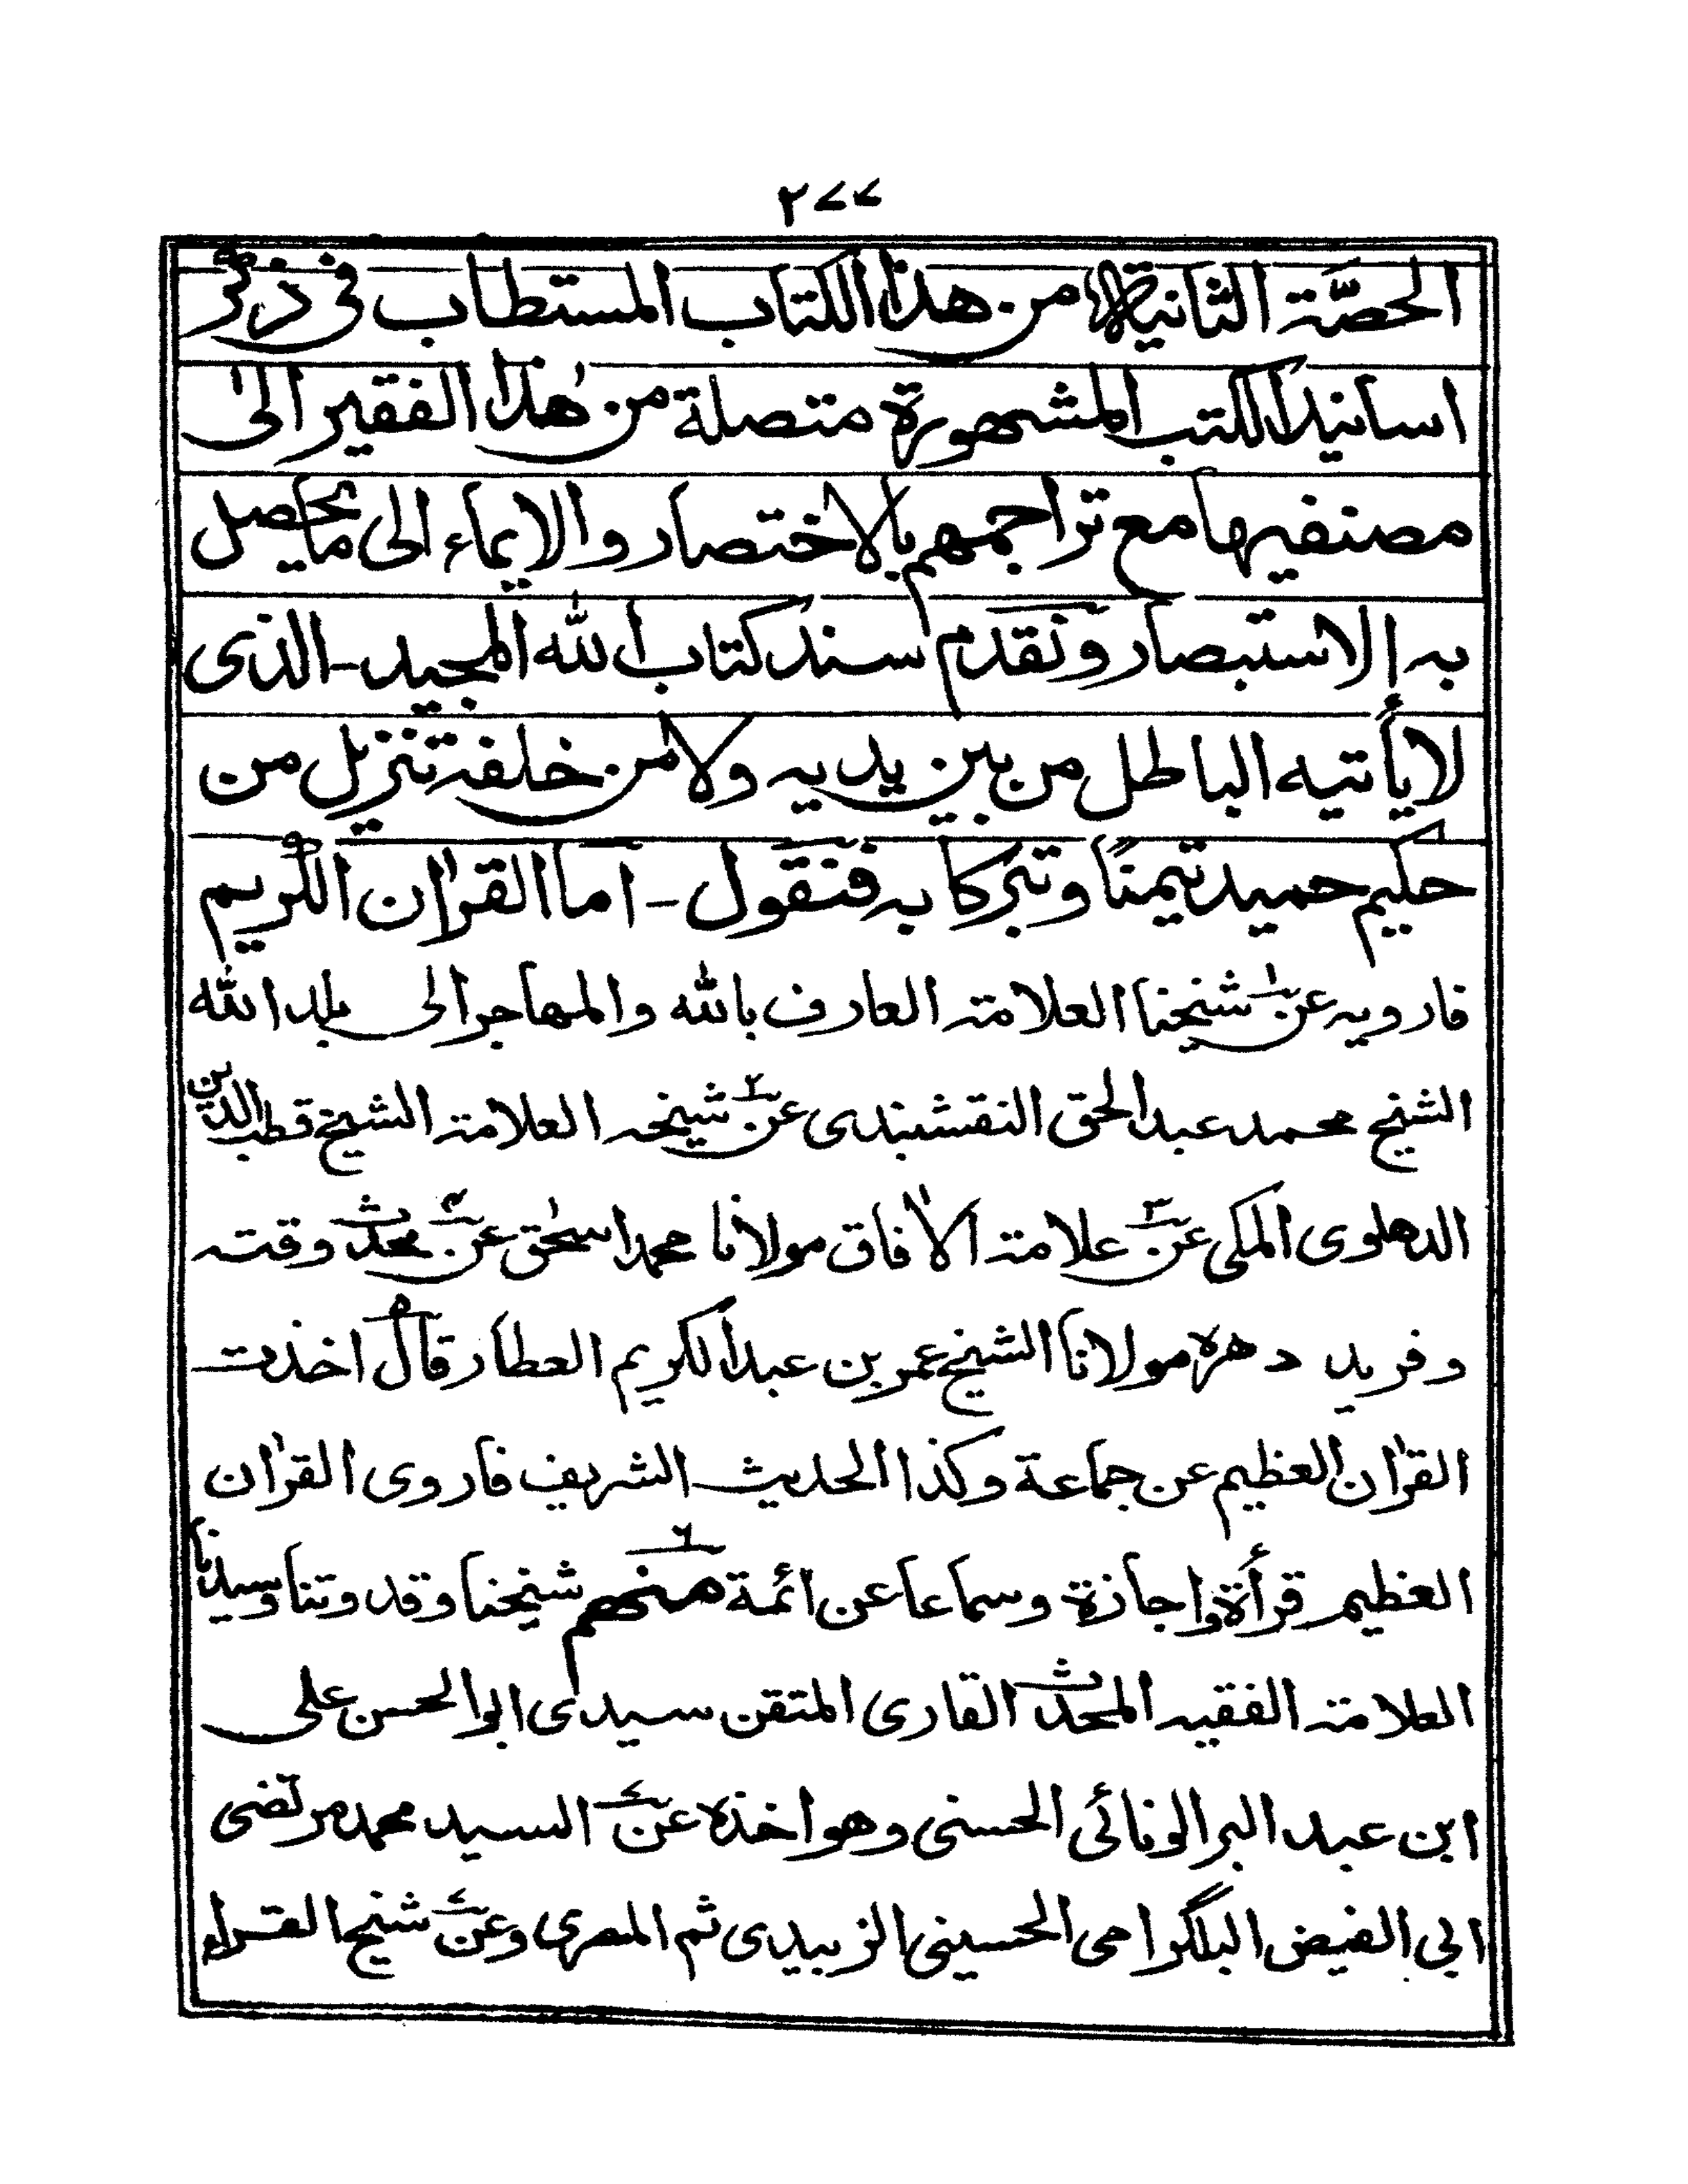 ٢٧٧
الحصّة الثانية من هذا الكتاب المستطاب فى ذكر
اسانيد الكتب المشهورة متصلة من هٰذا الفقير الىٰ
مصنفيها مع تراجمهم بالاختصار والايماء الى ما يحصل
به الاستبصار ونقدم سند كتاب الله المجيد - الذى
لا يأتيه الباطل من بين يديه ولا من خلفه تنزيل من
حكيم حميد تيمنًا وتبركا به فنقول - اما القرآن الكريم
فارويه عن ١ شيخنا العلامة العارف بالله والمهاجر الى بلد الله
الشيخ محمد عبد الحق النقشبندى عن ٢ شيخه العلامة الشيخ قطب الدين
الدهلوى المكى عن ٣ علامة الآفاق مولانا محمد اسحٰق عن ٤ محدث وقته
وفريد دهره مولانا الشيخ عمر بن عبد الكريم العطار قال ٥ اخذت
القرآن العظيم عن جماعة وكذا الحديث الشريف فاروى القرآن
العظيم قرأة واجازة وسماعا عن ائمة منهم ٦ شيخنا وقدوتنا وسيدنا
العلامة الفقيه المحدث القارى المتقن سيدى ابو الحسن على
ابن عبد البر الونائى الحسنى وهو اخذه عن ٧ السيد محمد مرتضى
ابى الفيض البلگرامى الحسينى الزبيدى ثم المصرى وعن ٧ شيخ القراء